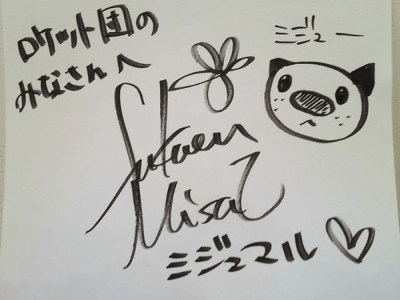 ロケット団の
みなさんへ
ミジュー
Fukuen
Misato
ミジュマル♡